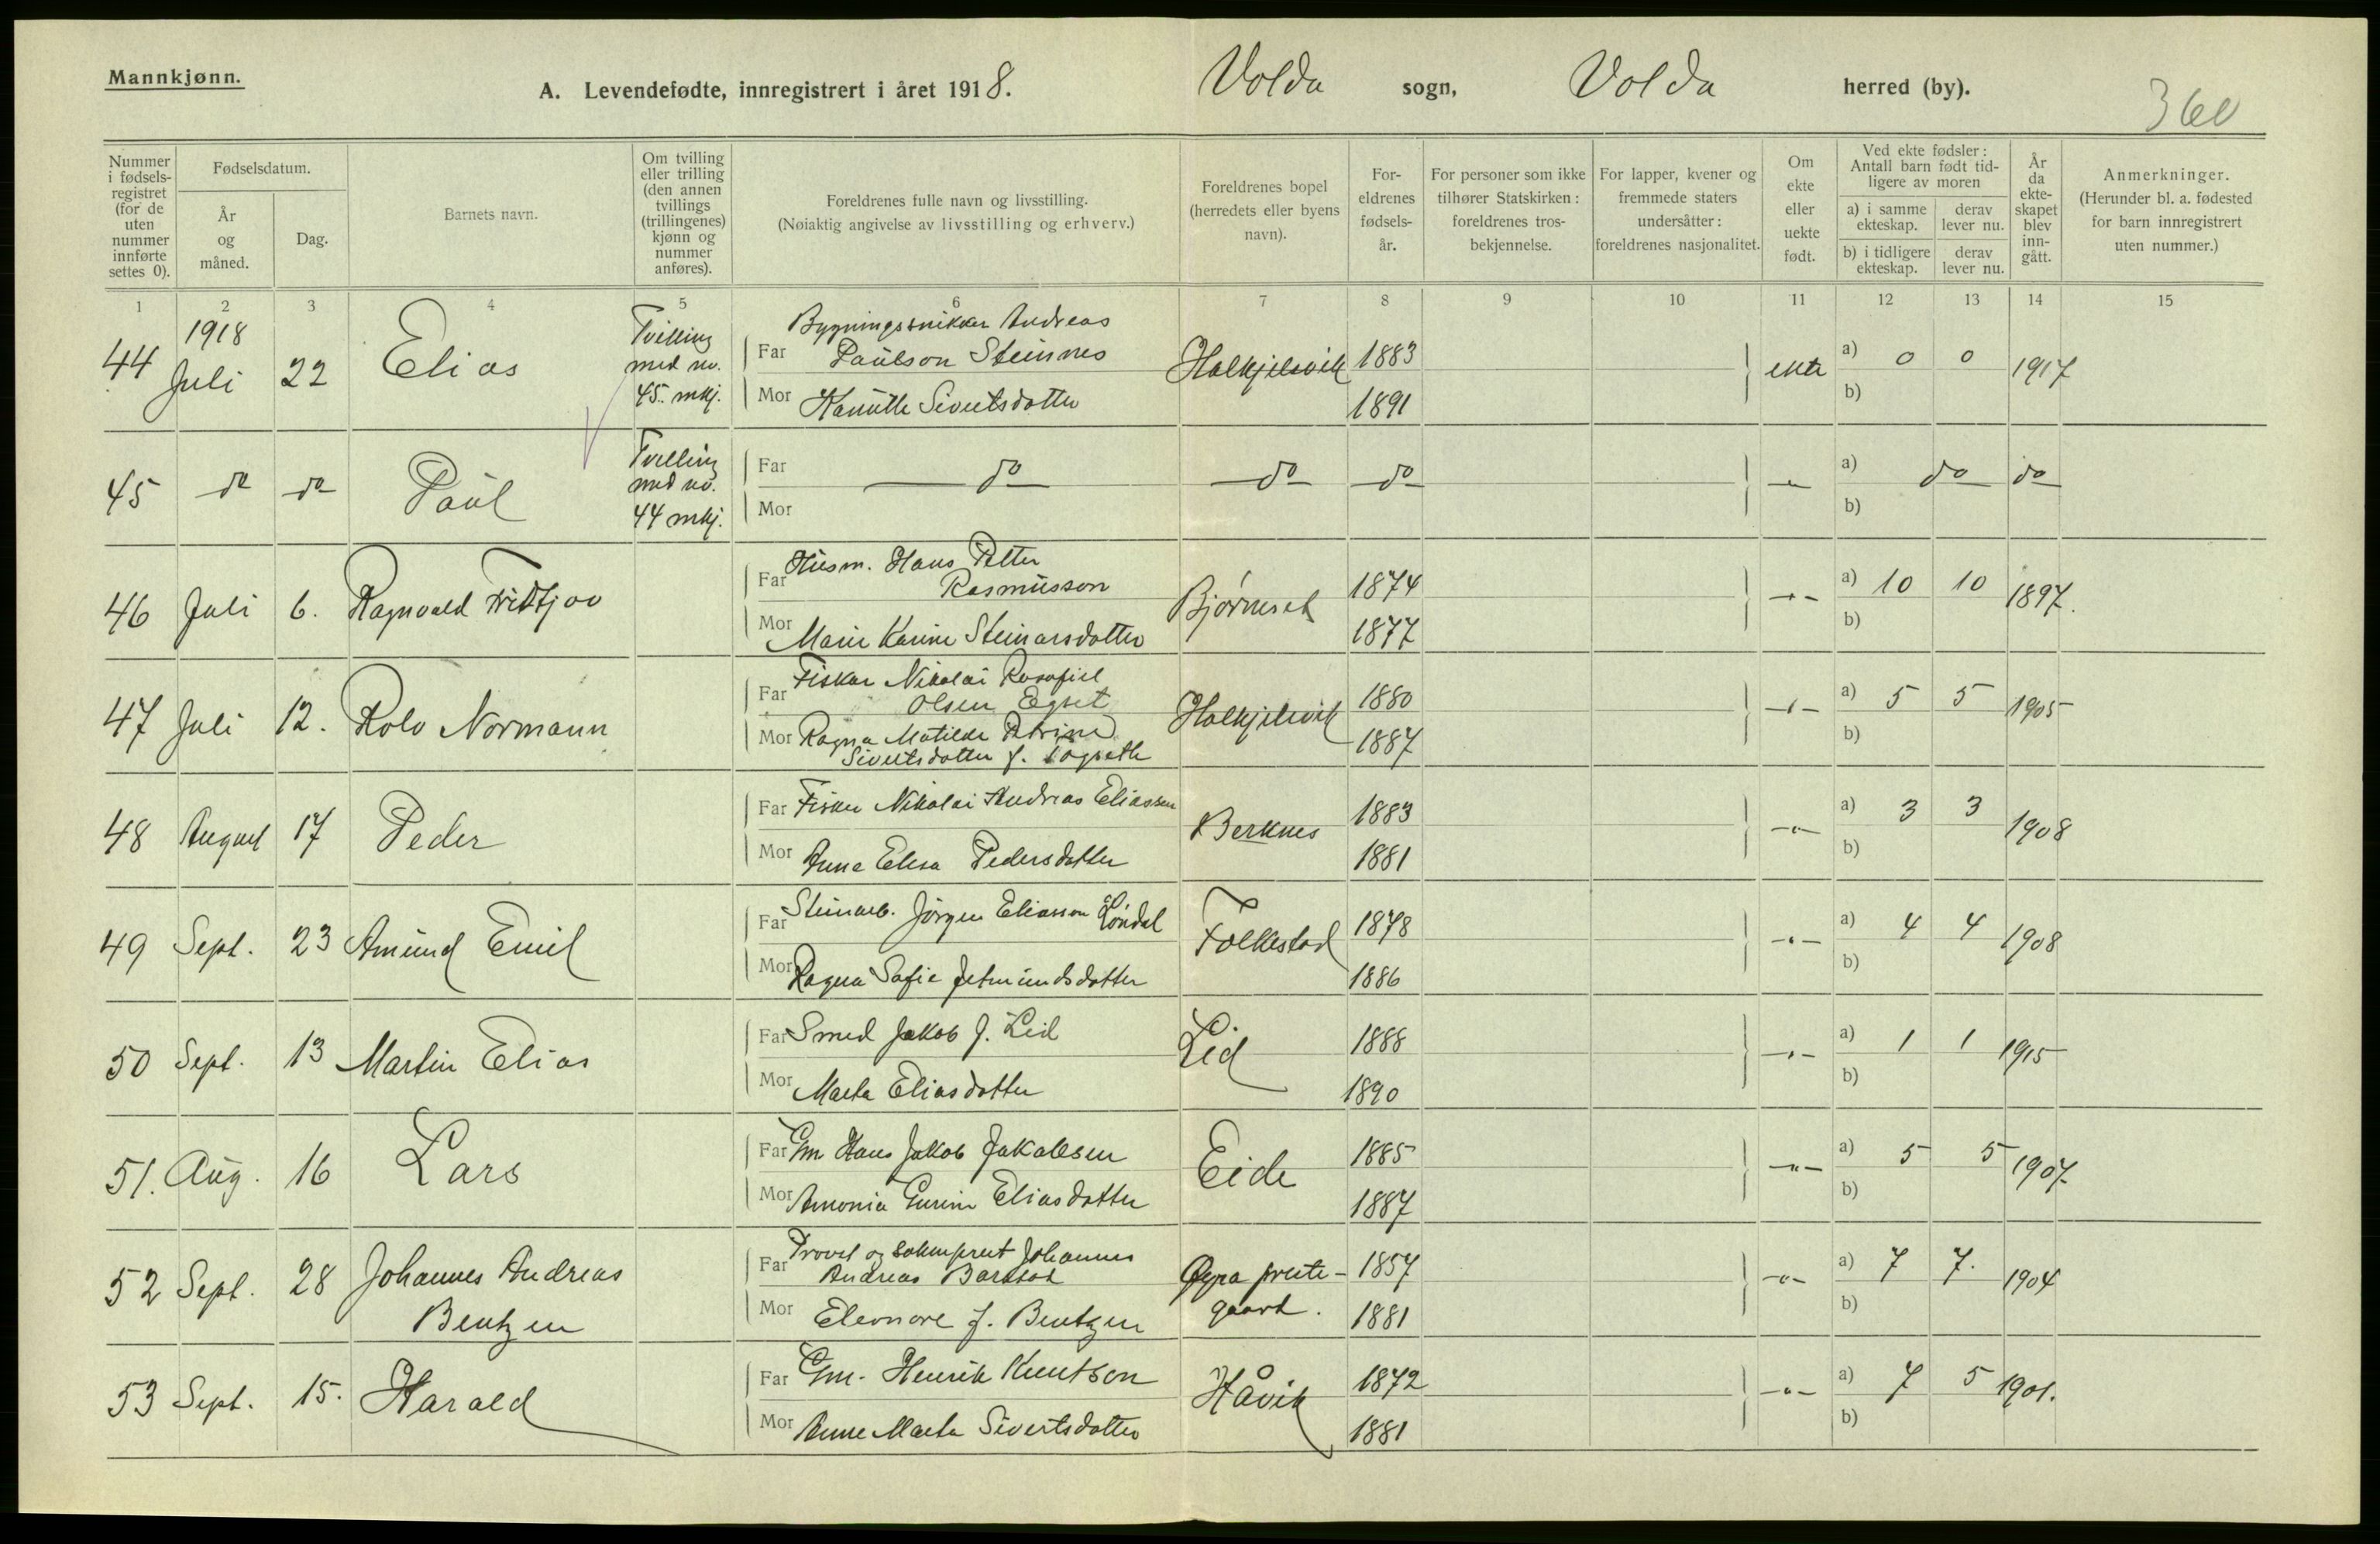 Mannkjønn.
A. Levendefødte, innregistrert i året 1918.
Volda sogn, Volda herred (by).
360
Nummer i fødsels-registret (for de uten nummer innførte settes 0).
Fødselsdatum.
År og måned.
Dag.
Barnets navn.
Om tvilling eller trilling (den annen tvillings (trillingenes) kjønn og nummer anføres).
Foreldrenes fulle navn og livsstilling.
(Nøiaktig angivelse av livsstilling og erhverv.)
Foreldrenes bopel (herredets eller byens navn).
For-eldrenes fødsels-år.
For personer som ikke tilhører Statskirken: foreldrenes tros-bekjennelse.
For lapper, kvener og fremmede staters undersåtter: foreldrenes nasjonalitet.
Om ekte eller uekte født.
Ved ekte fødsler: Antall barn født tid-ligere av moren
a) i samme ekteskap.
derav lever nu.
b) i tidligere ekteskap.
derav lever nu.
År da ekte-skapet blev inn-gått.
Anmerkninger.
(Herunder bl. a. fødested for barn innregistrert uten nummer.)
1 2 3 4 5 6 7 8 9 10 11 12 13 14 15
44 1918 Juli 22 Elias Tvilling med no. 45. mkj.
Far Bygningssnikker Andreas Paulson Steinnes Halkjelsvik 1883 ekte a) 0 0 1917
Mor Sivertsdotter 1891 b)
45 do do Paul Tvilling med no. 44 mkj.
Far do do do - a) do do
Mor b)
46 Juli 6. Ragnvald Fridtjov
Far Husm. Hans Petter Rasmusson Bjørneset 1874 -"- a) 10 10 1897.
Mor Marie Karine Steinarsdotter 1877 b)
47 Juli 12. Rolv Normann
Far Fisker Nikolai Olsen Egset Halkjelsvik 1880 -"- a) 5 5 1905
Mor Ragna Matilde Petrine Sivertsdotter f. 1887 b)
48 August 17 Peder
Far Fisker Nikolai Andreas Eliassen Berknes 1883 -"- a) 3 3 1908
Mor Anne Elisa Pedersdotter 1881 b)
49 Sept. 23 Amund Emil
Far Steinarb. Jørgen Eliasson Løndal Folkestad 1878 -"- a) 4 4 1908
Mor Ragna Sofie Jetmundsdotter 1886 b)
50 Sept. 13 Martin Elias
Far Smed Jakob J. Lid Lid 1888 -"- a) 1 1 1915
Mor Marta Eliasdotter 1890 b)
51. Aug. 16 Lars
Far Gm Hans Jakob Jakobsen Eide 1885 -"- a) 5 5 1907
Mor Amonia Gurine Eliasdotter 1887 b)
52 Sept. 28 Johannes Andreas Bentzen
Far Provst og Johannes Andreas Barstad Øyra preste-gaard. 1857 -"- a) 7 7. 1904
Mor Eleonore f. Bentzen 1881 b)
53 Sept. 15. Harald
Far Gm. Henrik Knutson Håvik 1872 -"- a) 7 5 1901.
Mor Anne Marta Sivertsdotter 1881 b)